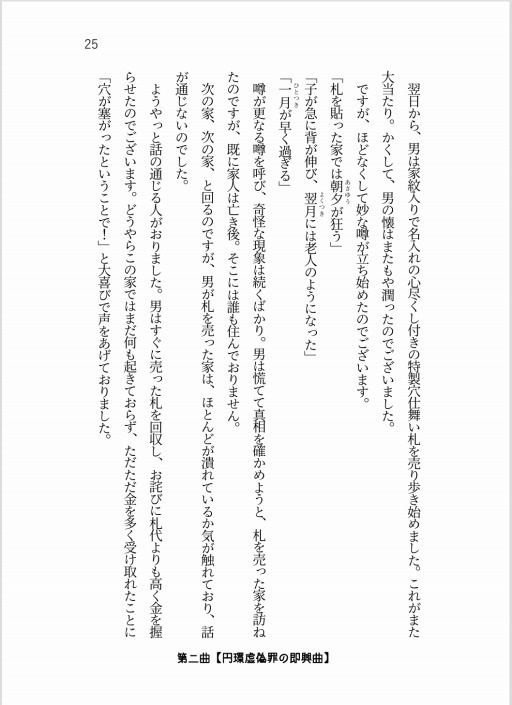 25
翌日から、男は家紋入りで名入れの心尽くし付きの特製穴仕舞い札を売り歩き始めました。これがまた
大当たり。かくして、男の懐はまたもや潤ったのでございました。
ですが、ほどなくして妙な噂が立ち始めたのでございます。
「札を貼った家では朝夕が狂う」
あさゆう
「子が急に背が伸び、翌月には老人のようになった」
よくつき
「一月が早く過ぎる」
ひとつき
噂が更なる噂を呼び、奇怪な現象は続くばかり。男は慌てて真相を確かめようと、札を売った家を訪ね
たのですが、既に家人は亡き後。そこには誰も住んでおりません。
次の家、次の家、と回るのですが、男が札を売った家は、ほとんどが潰れているか気が触れており、話
が通じないのでした。
ようやっと話の通じる人がおりました。男はすぐに売った札を回収し、お詫びに札代よりも高く金を握
らせたのでございます。どうやらこの家ではまだ何も起きておらず、ただただ金を多く受け取れたことに
「穴が塞がったということで！」と大喜びで声をあげておりました。
第二曲【円環虚偽罪の即興曲】